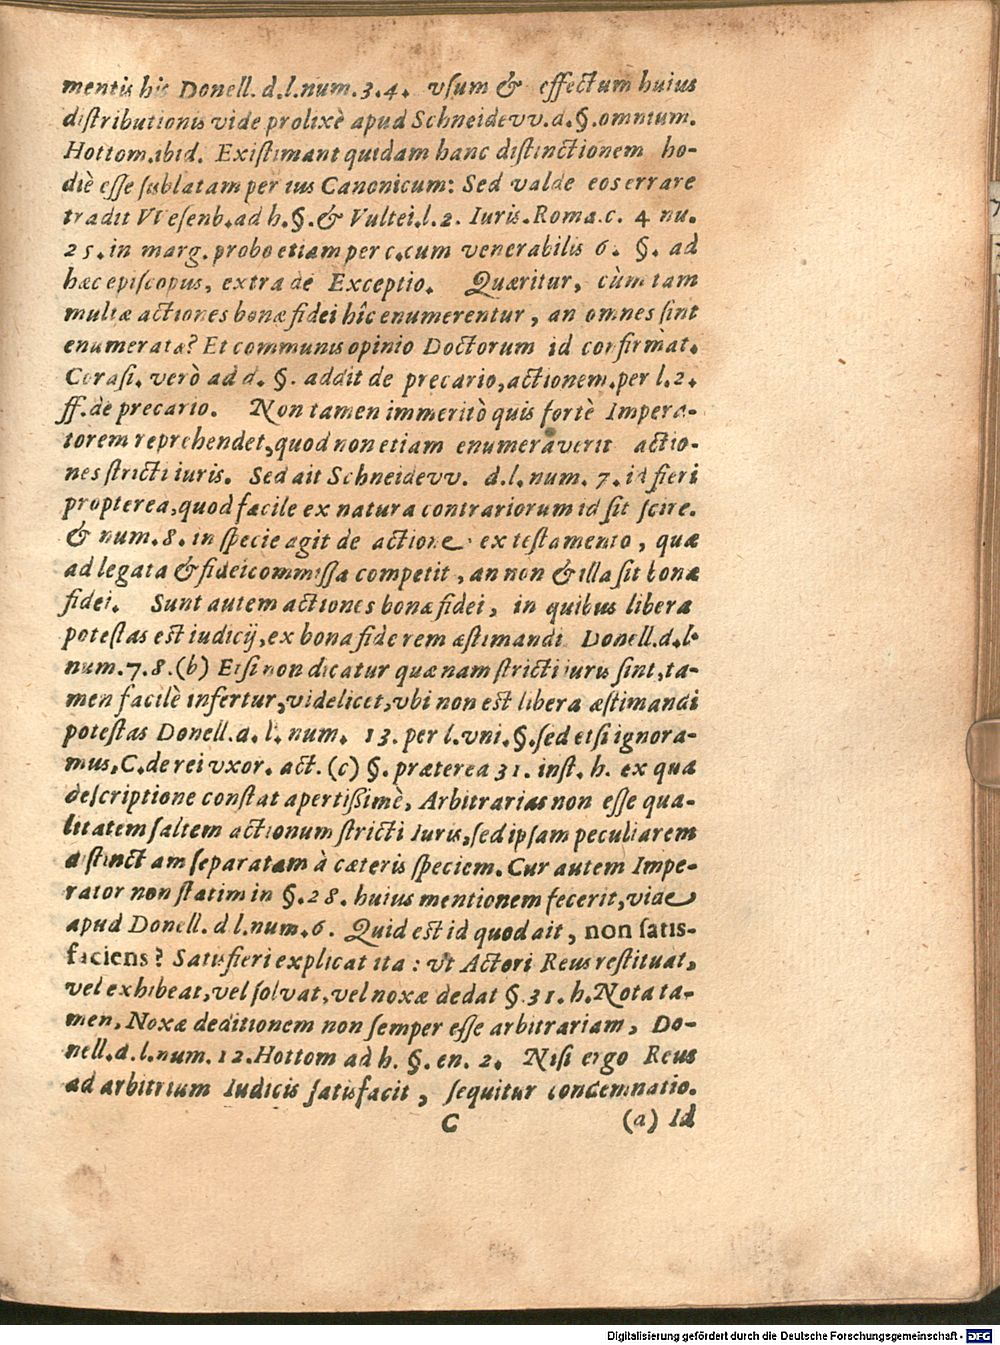 mentis his Donell. d.l.num.3.4. vsum & effectum huius
distributionis vide prolixè apud Schneidevv.d.§.omnium.
Hottom.ibid. Existimant quidam hanc distinctionem ho-
diè esse sublatam per ius Canonicum: Sed valde eos errare
tradit VVesenb.ad h.§.& Vultei.l.2. Iuris.Roma.c. 4 nu.
25.in marg. probo etiam per c.cum venerabilis 6. §. ad
hæc episcopus, extra de Exceptio. Quæritur, cùm tam
multæ actiones bonæ fidei hîc enumerentur, an omnes sint
enumerata? Et communis opinio Doctorum id confirmat.
Corasi. verò ad d. §. addit de precario,actionem.per l.2.
ff.de precario. Non tamen immeritò quis fortè Impera-
torem reprehendet,quod non etiam enumeraverit actio-
nes stricti iuris. Sed ait Schneidevv. d.l. num. 7. id fieri
propterea,quod facile ex natura contrariorum id sit scire.
& num.8. in specie agit de actione ex testamento, quæ
ad legata & fideicommissa competit, an non & illa sit bonæ
fidei. Sunt autem actiones bonæ fidei, in quibus libera
potestas est iudicij,ex bona fide rem æstimandi Donell.d.l.
num.7.8.(b) Etsi non dicatur quænam stricti iuris sint,ta-
men facilè infertur,videlicet,vbi non est libera æstimandi
potestas Donell.d. l. num. 13. per l.vni.§.sed etsi ignora-
mus,C.de rei vxor. act. (c) §. præterea 31. inst. h. ex qua
descriptione constat apertißimè, Arbitrarias non esse qua-
litatem saltem actionum stricti Iuris,sed ipsam peculiarem
distinctam separatam à cæteris speciem. Cur autem Impe-
rator non statim in §.28. huius mentionem fecerit,vide
apud Donell. d l.num.6. Quid est id quod ait, non satis-
faciens? Satisfieri explicat ita: vt Actori Reus restituat,
vel exhibeat,vel solvat,vel noxæ dedat §.31. h. Nota ta-
men, Noxæ deditionem non semper esse arbitrariam, Do-
nell.d.l.num.12.Hottom ad h. §. en. 2. Nisi ergo Reus
ad arbitrium Iudicis satisfacit, sequitur condemnatio.
C (a) Id
Digitalisierung gefördert durch die Deutsche Forschungsgemeinschaft - DFG